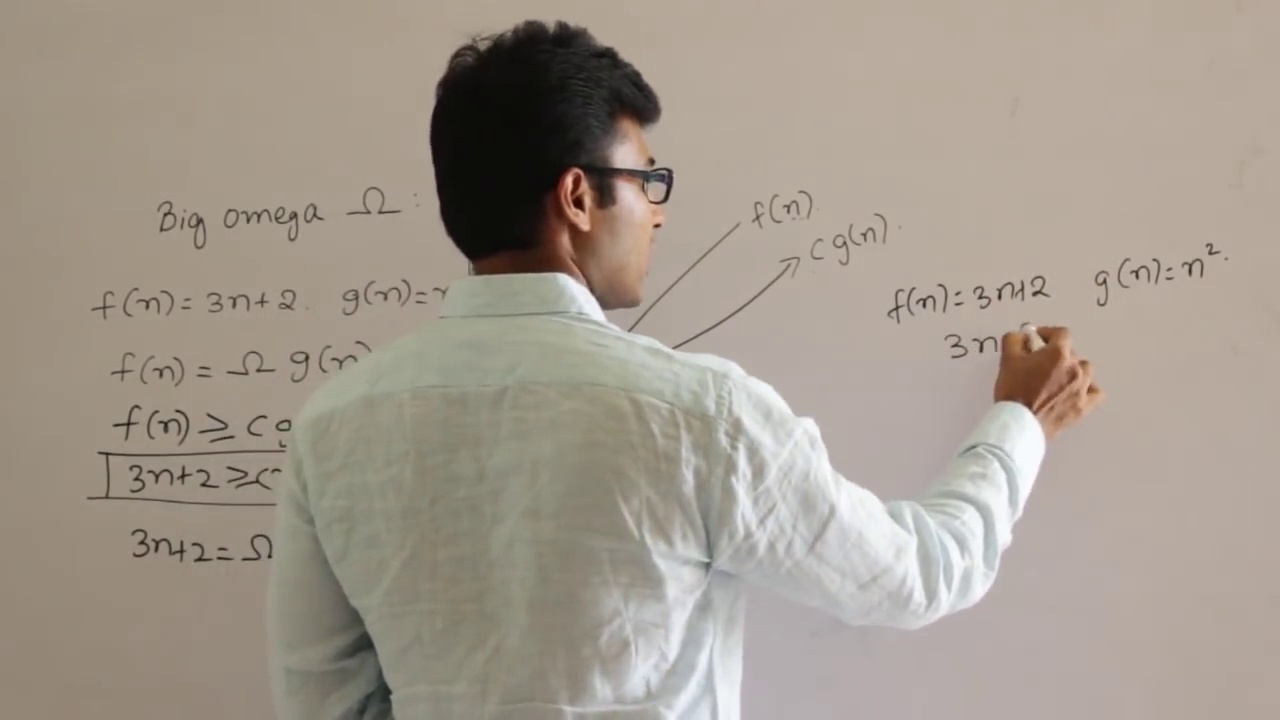 Big omega Ω :
f(n) = 3n+2. g(n)=
f(n) = Ω g(n)
f(n) ≥ c g
3n+2 ≥ c
3n+2 = Ω
f(n).
c g(n).
f(n) = 3n+2 g(n) = n².
3n